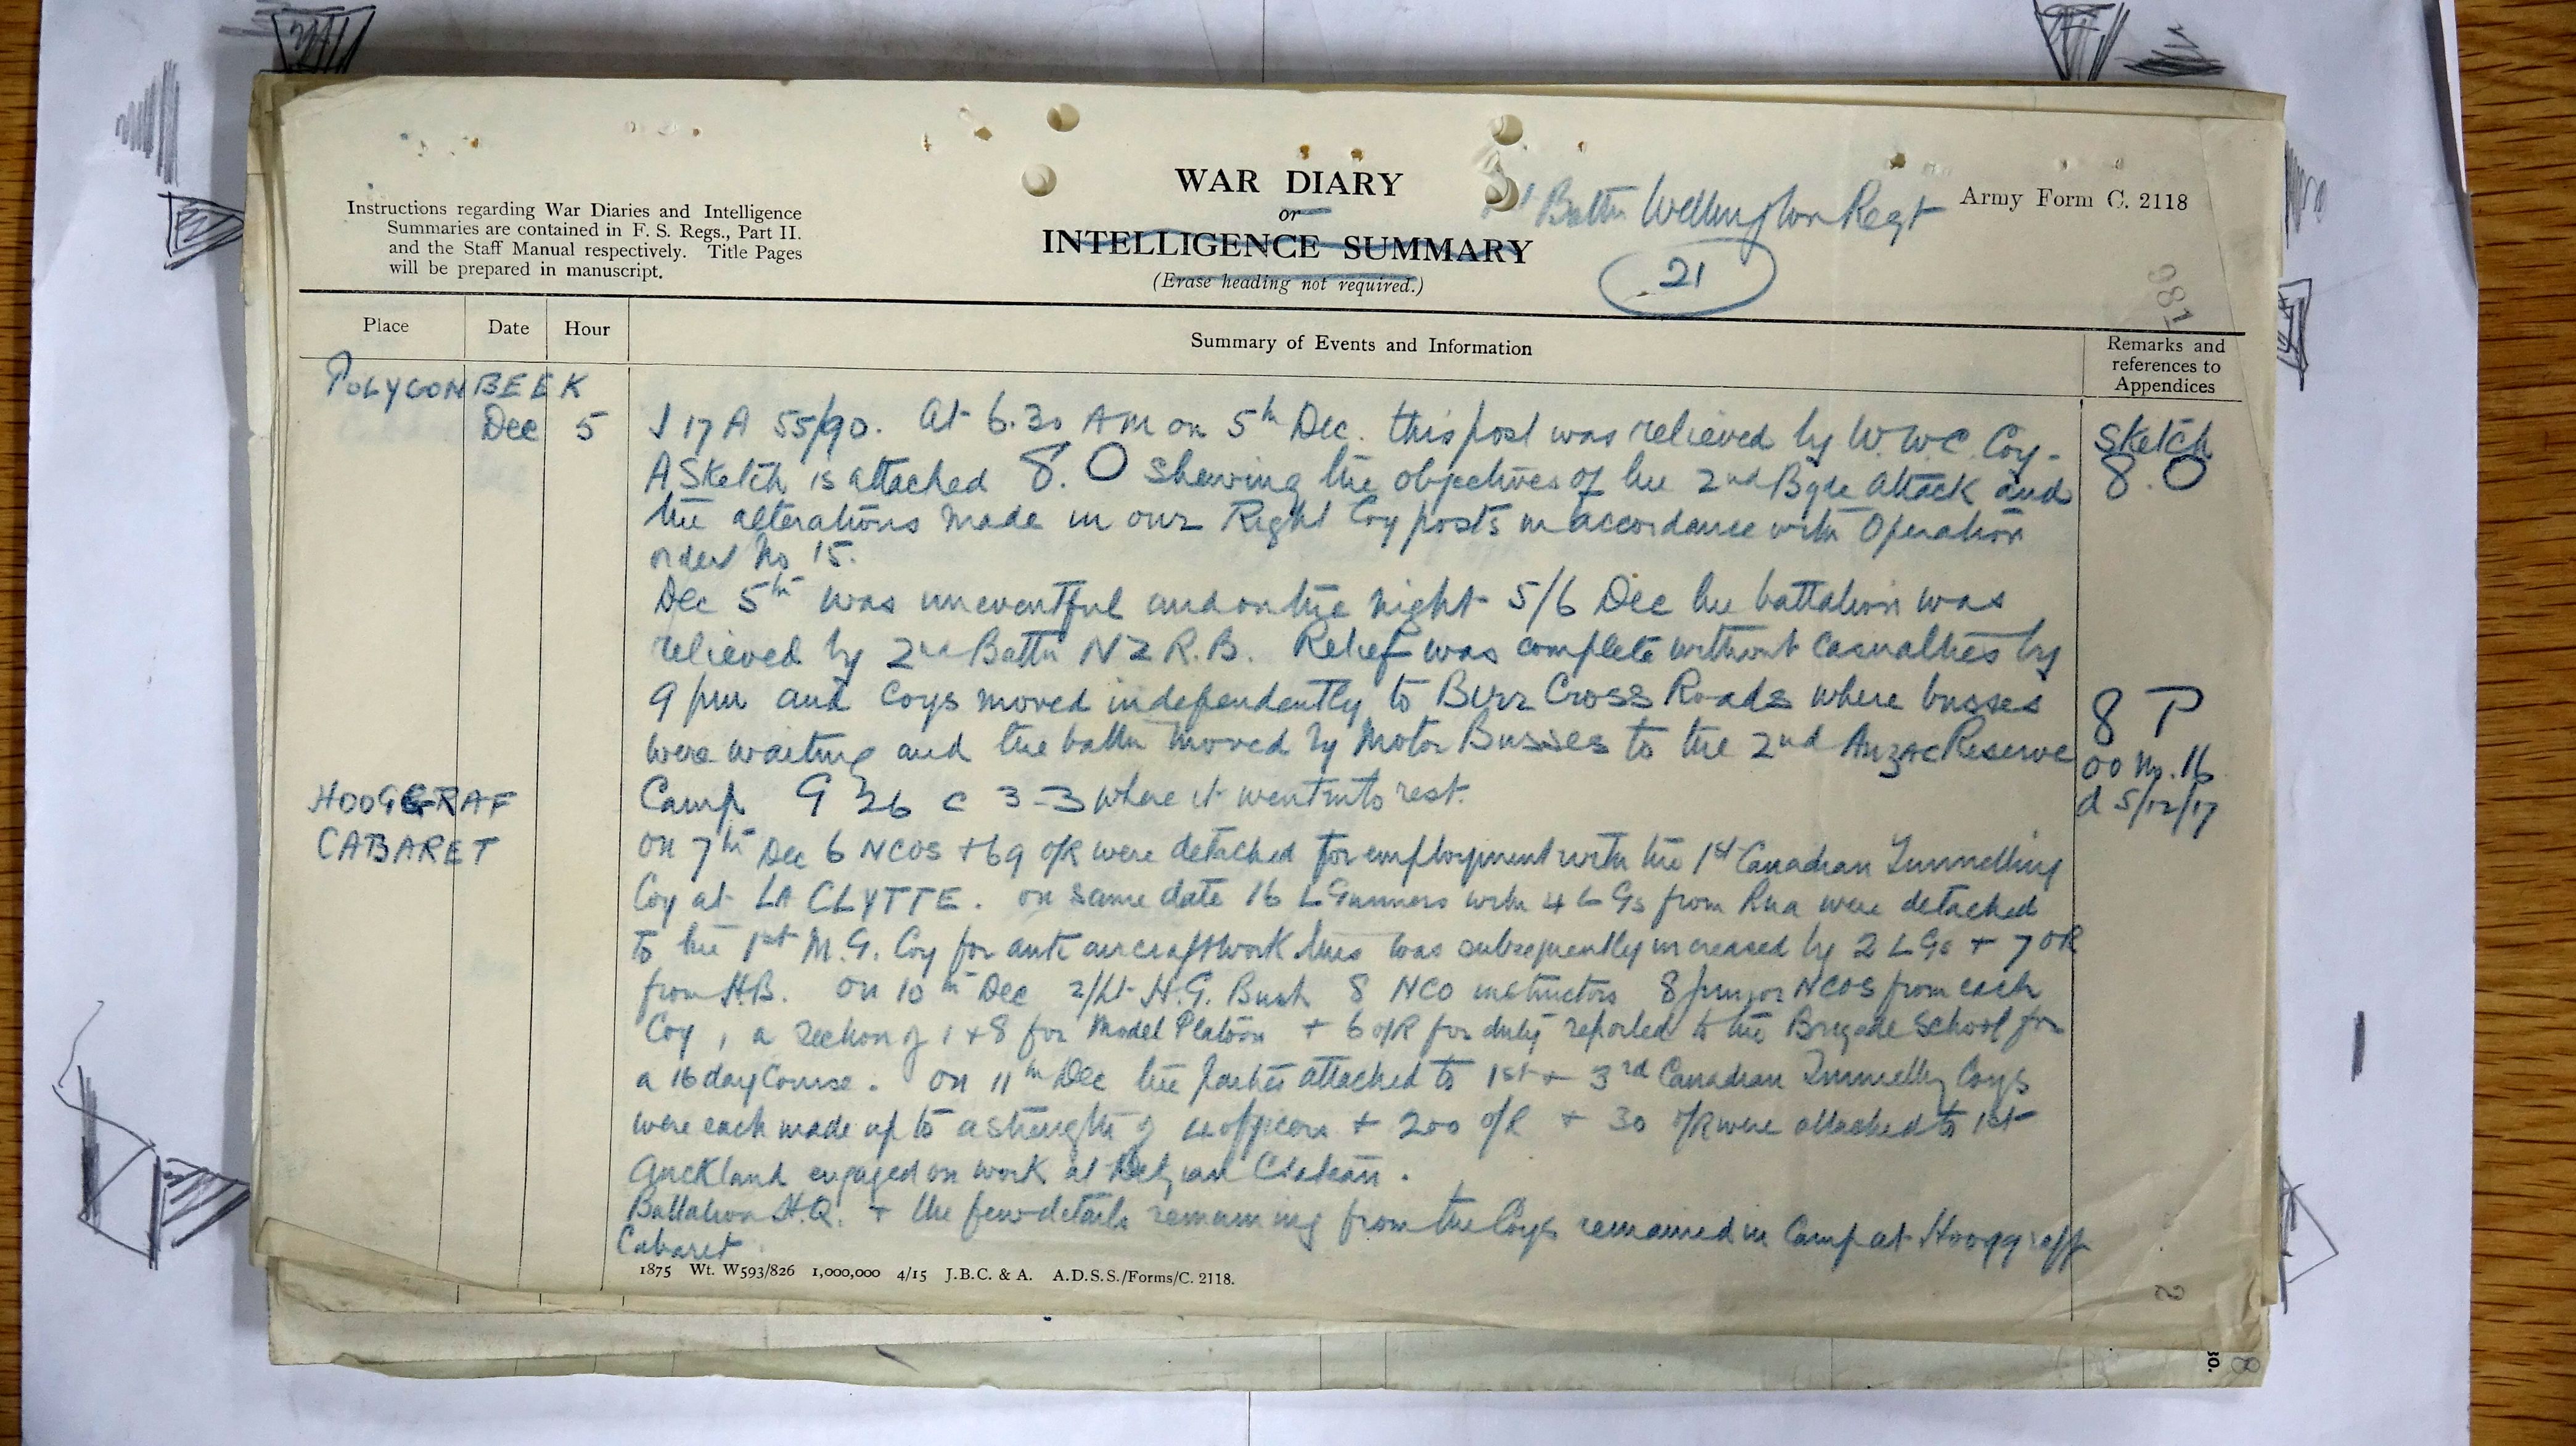 WAR DIARY
or
INTELLIGENCE SUMMARY
(Erase heading not required.)
Instructions regarding War Diaries and Intelligence
Summaries are contained in F. S. Regs., Part II.
and the Staff Manual respectively. Title Pages
will be prepared in manuscript.
Battn Wellington Regt
21
Army Form C. 2118
186
Place
Date
Hour
Summary of Events and Information
Remarks and
references to
Appendices
POLYGONBEEK
Dec 5
J 17 A 55/90. At 6.30 AM on 5th Dec. this post was relieved by W.W.C. Coy-
A Sketch is attached 8.O shewing the objectives of the 2nd Bgde Attack and
the alterations made in our Right Coy posts in accordance with Operation
order No 15.
Sketch
8.O
Dec 5th was uneventful and on the night 5/6 Dec the battalion was
relieved by 2nd Battn N Z R.B. Relief was complete without casualties by
9 pm and Coys moved independently to Birr Cross Roads where busses
were waiting and the battn moved by Motor Busses to the 2nd Anzac Reserve
Camp G 26 c 3-3 where it went into rest.
8 P
OO No. 16
d 5/12/17
HOOGGRAF
CABARET
on 7th Dec 6 NCOS + 69 O/R were detached for employment with the 1st Canadian Tunnelling
Coy at LA CLYTTE. on same date 16 L Gunners with 4 L Gs from Rua were detached
to the 1st M.G. Coy for anti aircraft work this was subsequently increased by 2 L Gs + 7 OR
from H.B. On 10th Dec 2/Lt H.G. Bush 8 NCO instructors 8 junior NCOS from each
Coy, a section of 1 + 8 for Model Platoon + 6 O/R for duty reported to the Brigade School for
a 16 day Course. On 11th Dec the parties attached to 1st + 3rd Canadian Tunnelling Coys
were each made up to a strength of 4 officers + 200 O/R + 30 O/R were attached to 1st
Auckland engaged on work at Belgian Chateau.
Battalion H.Q. + the few details remaining from the Coys remained in Camp at Hooggraff
Cabaret.
1875 Wt. W593/826 1,000,000 4/15 J.B.C. & A. A.D.S.S./Forms/C. 2118.
2